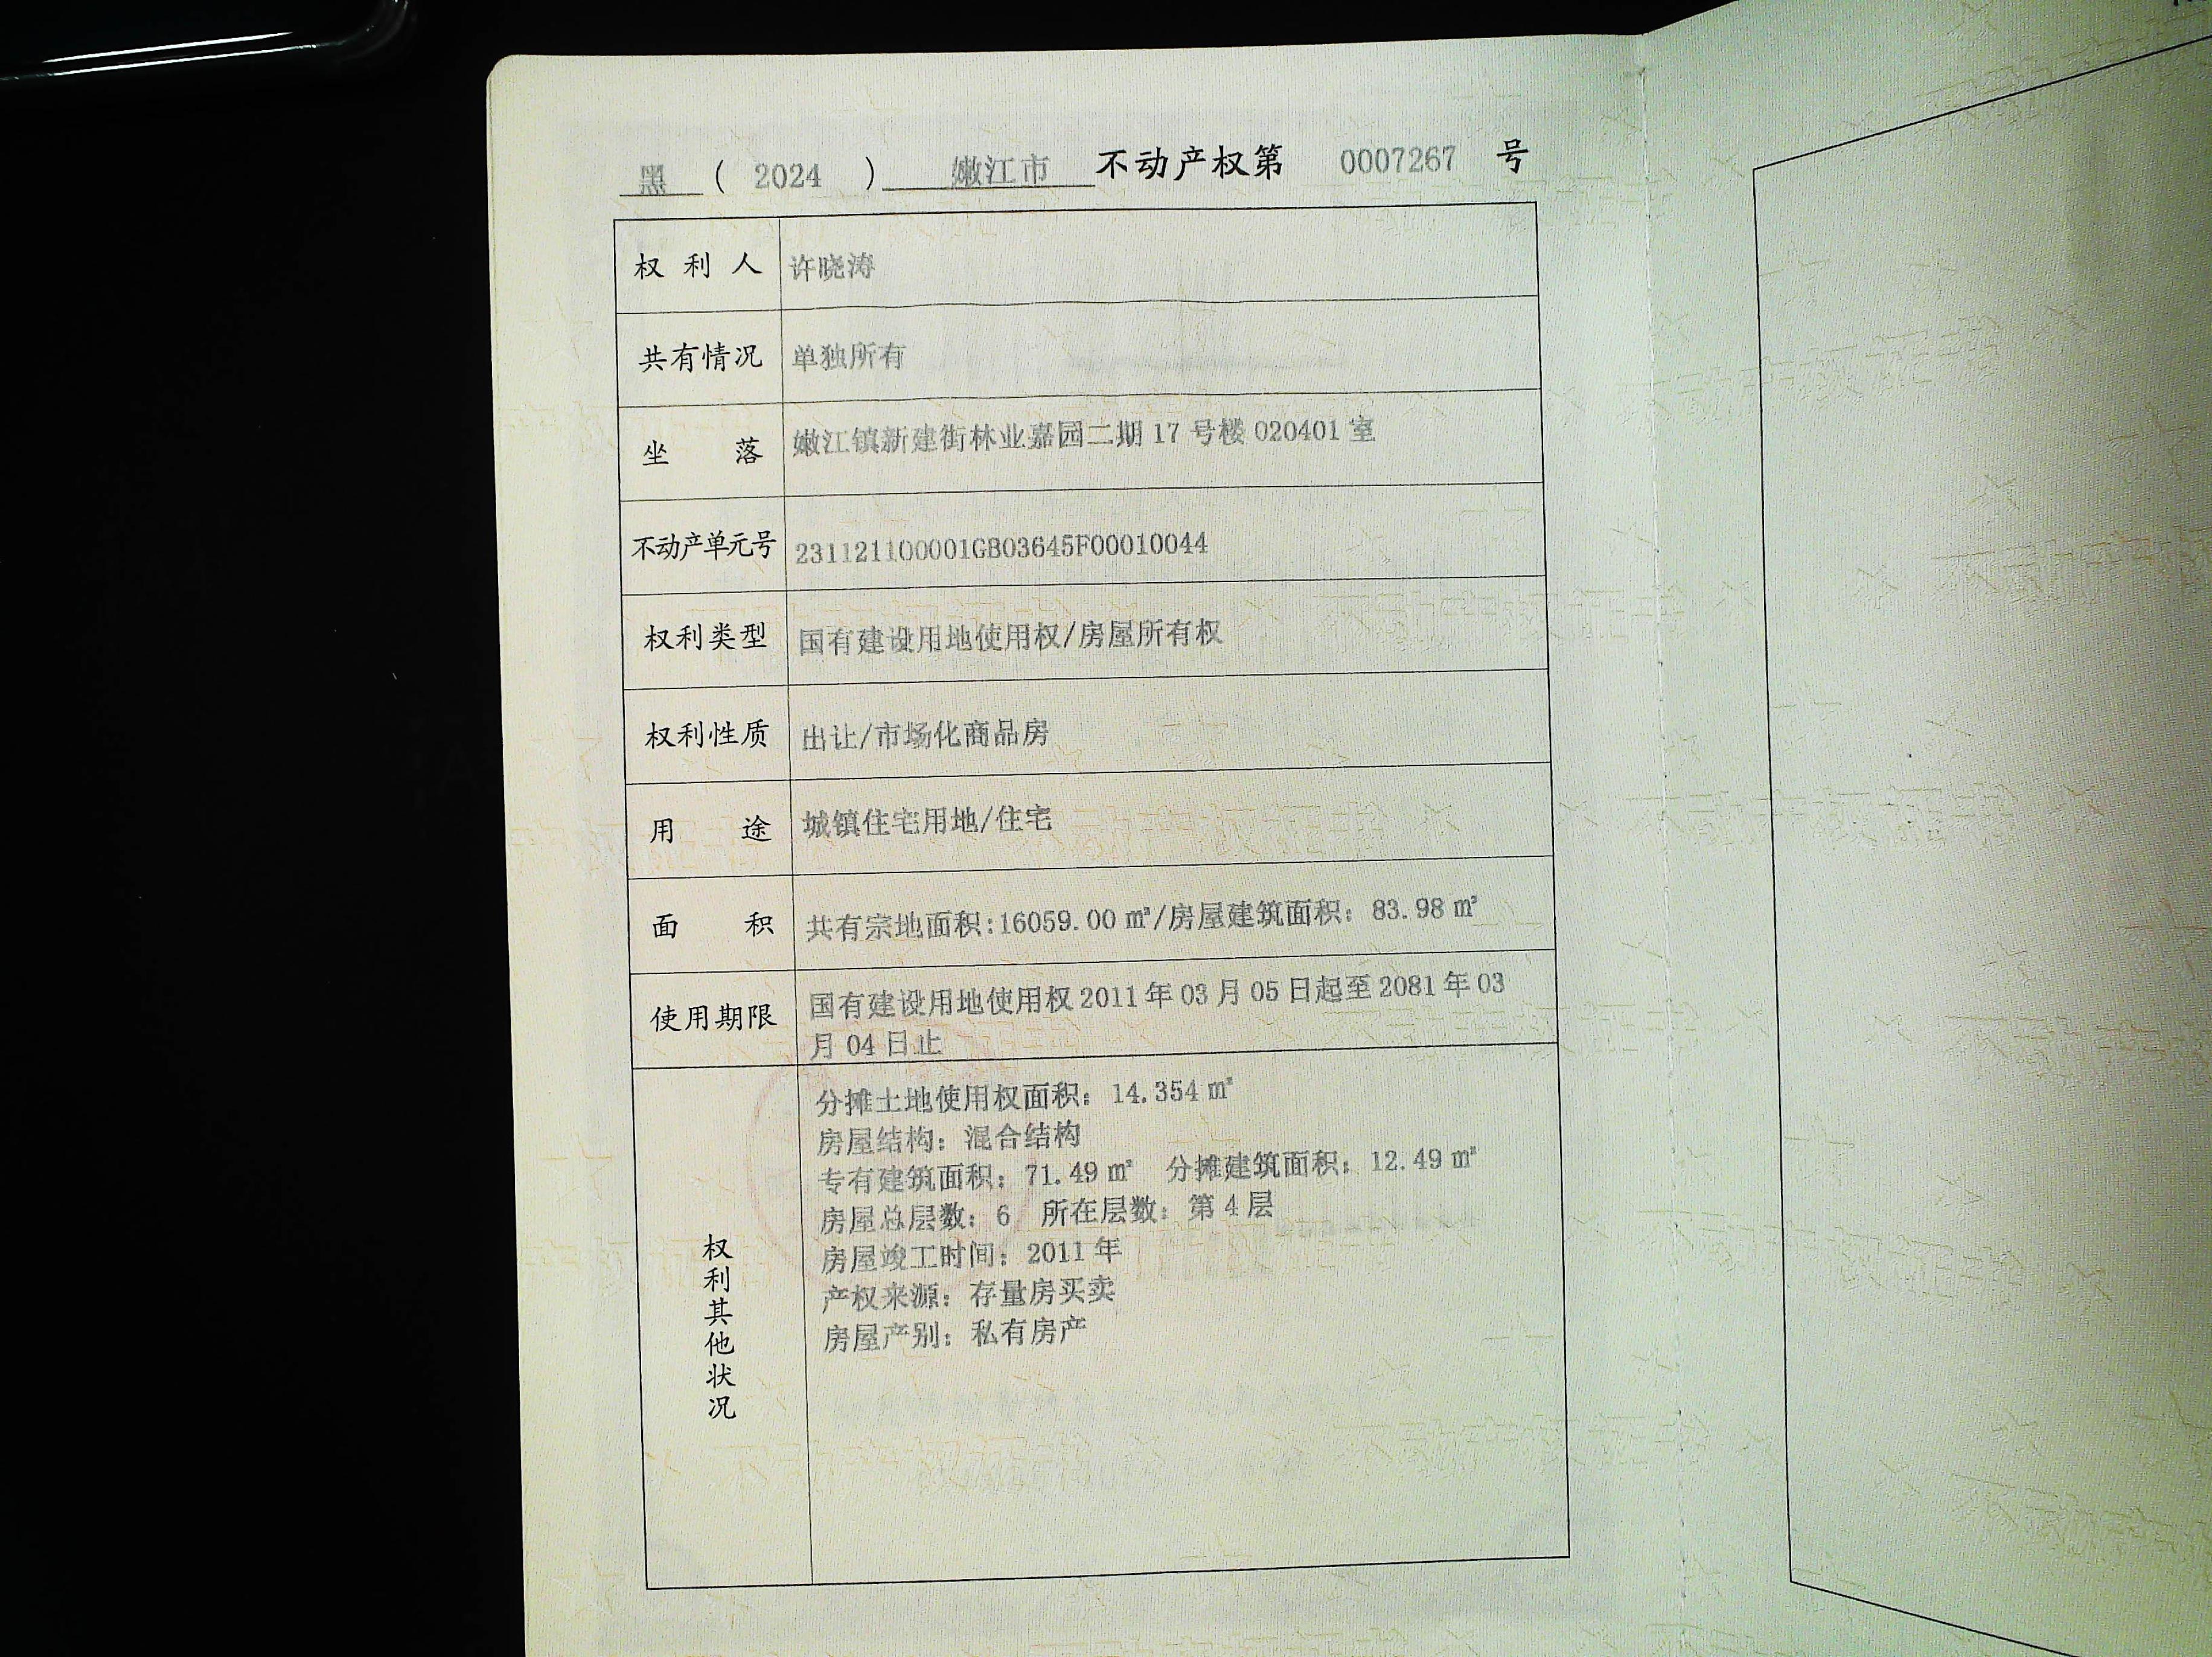 黑 ( 2024 ) 嫩江市 不动产权第 0007267 号
权利人 许晓涛
共有情况 单独所有
坐落 嫩江镇新建街林业嘉园二期 17 号楼 020401 室
不动产单元号 231121100001GB03645F00010044
权利类型 国有建设用地使用权/房屋所有权
权利性质 出让/市场化商品房
用途 城镇住宅用地/住宅
面积 共有宗地面积:16059.00 ㎡/房屋建筑面积: 83.98 ㎡
使用期限 国有建设用地使用权 2011 年 03 月 05 日起至 2081 年 03
月 04 日止
权利其他状况
分摊土地使用权面积: 14.354 ㎡
房屋结构: 混合结构
专有建筑面积: 71.49 ㎡ 分摊建筑面积: 12.49 ㎡
房屋总层数: 6 所在层数: 第 4 层
房屋竣工时间: 2011 年
产权来源: 存量房买卖
房屋产别: 私有房产